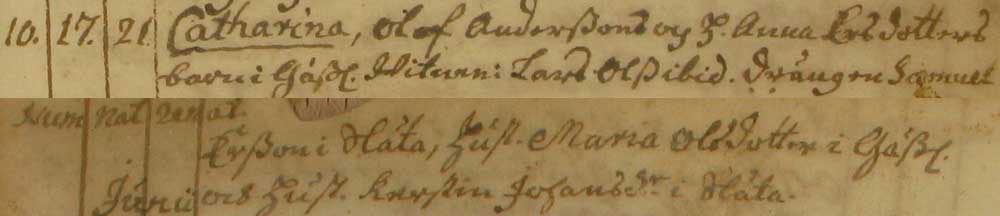 10. 17. 21. Catharina, Olof Anderßons og H. Anna Ersdotters
barn i Gåßl. Vitnen: Lars Olß ibid. Drängen Samuel
Num Nat Renat.
Erßon i Slåta, Hust. Maria Olsdotter i Gåßl.
Junii ock Hust. Kerstin Johansdr i Slåta.